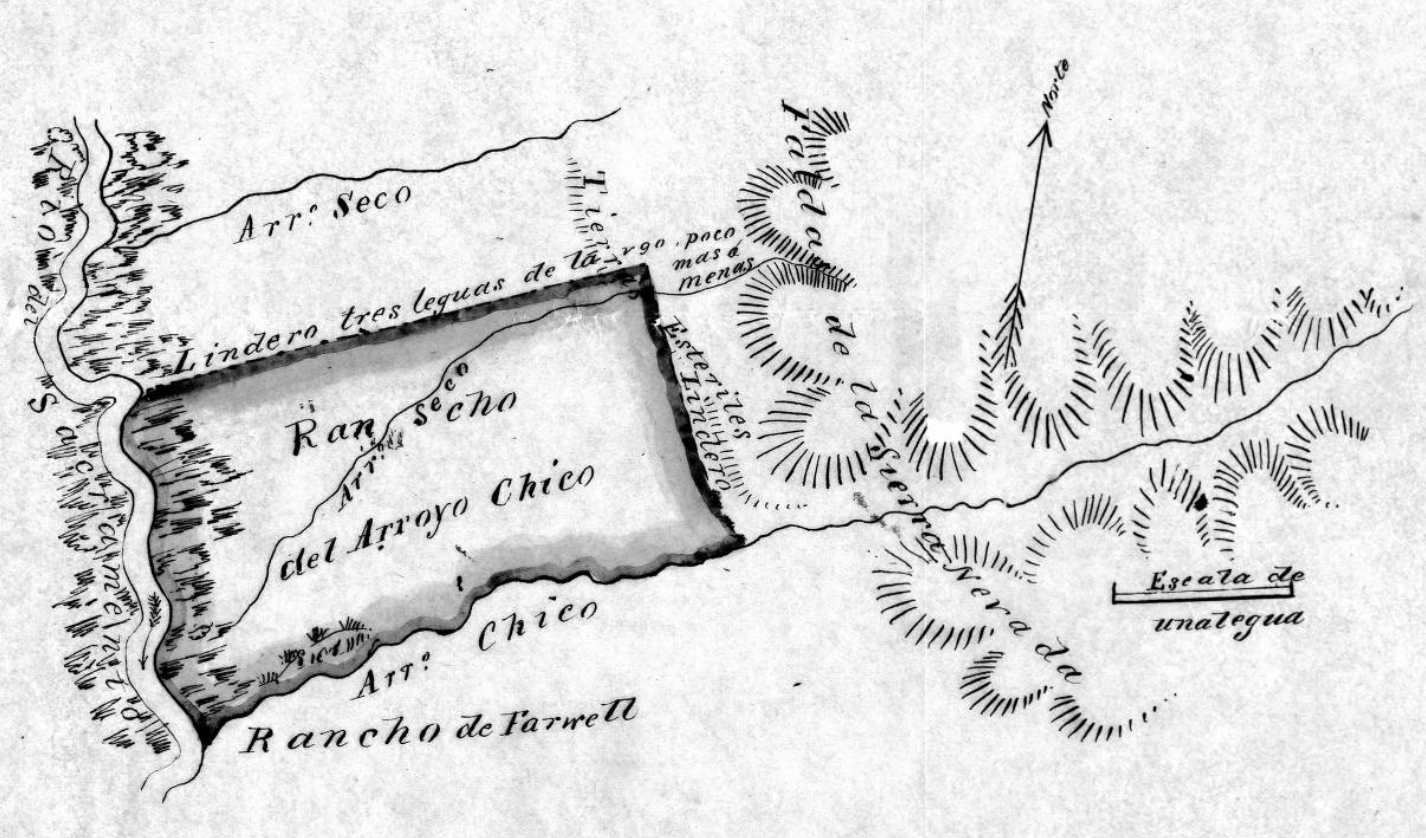 Norte
Arr.º Seco
Rio del Sacramento
Lindero tres leguas de largo, poco
mas ó
menas
Tierras
Esteriles
Lindero
Falda de la Sierra Nevada
Rancho
Arr.º Seco
del Arroyo Chico
Arr.º Chico
Rancho de Farwell
Escala de
una legua